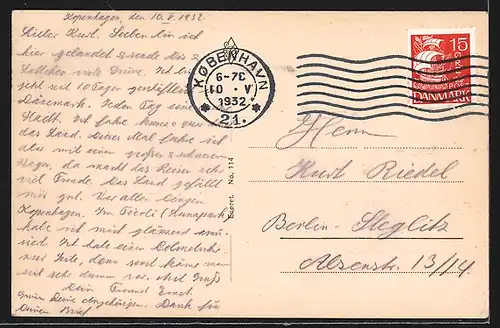 Kopenhagen, den 10.V.1932.
Lieber Kurt. Soeben bin ich
hier gelandet & sende Dir &
viele Grüsse. Ich bin
jetzt seit 10 Tagen geschäftlich
Dänemark. Jeden Tag eine
Stadt. Ich fahre
das Land. Dieses Mal fahre ich
also mit einem großen & schönen
Wagen, da macht das Reisen sehr
viel Freude. Das Land gefällt
mir gut. Vor allen Dingen
Kopenhagen. Im Tivoli (Lunapark)
habe ich mich glänzend amü-
siert. Ich habe einen Dolmetscher
Seite, denn sonst käme man
mit sehr darum vor. Mit Gruß
Dein Freund Ernst.
Deine Angehörigen. Dank für
Deinen Brief
KØBENHAVN
6-7E
10 V
1932
21.
15
DANMARK
Eneret. No. 114
Herrn
Kurt Riedel
Berlin-Steglitz
Alsenstr. 13/14